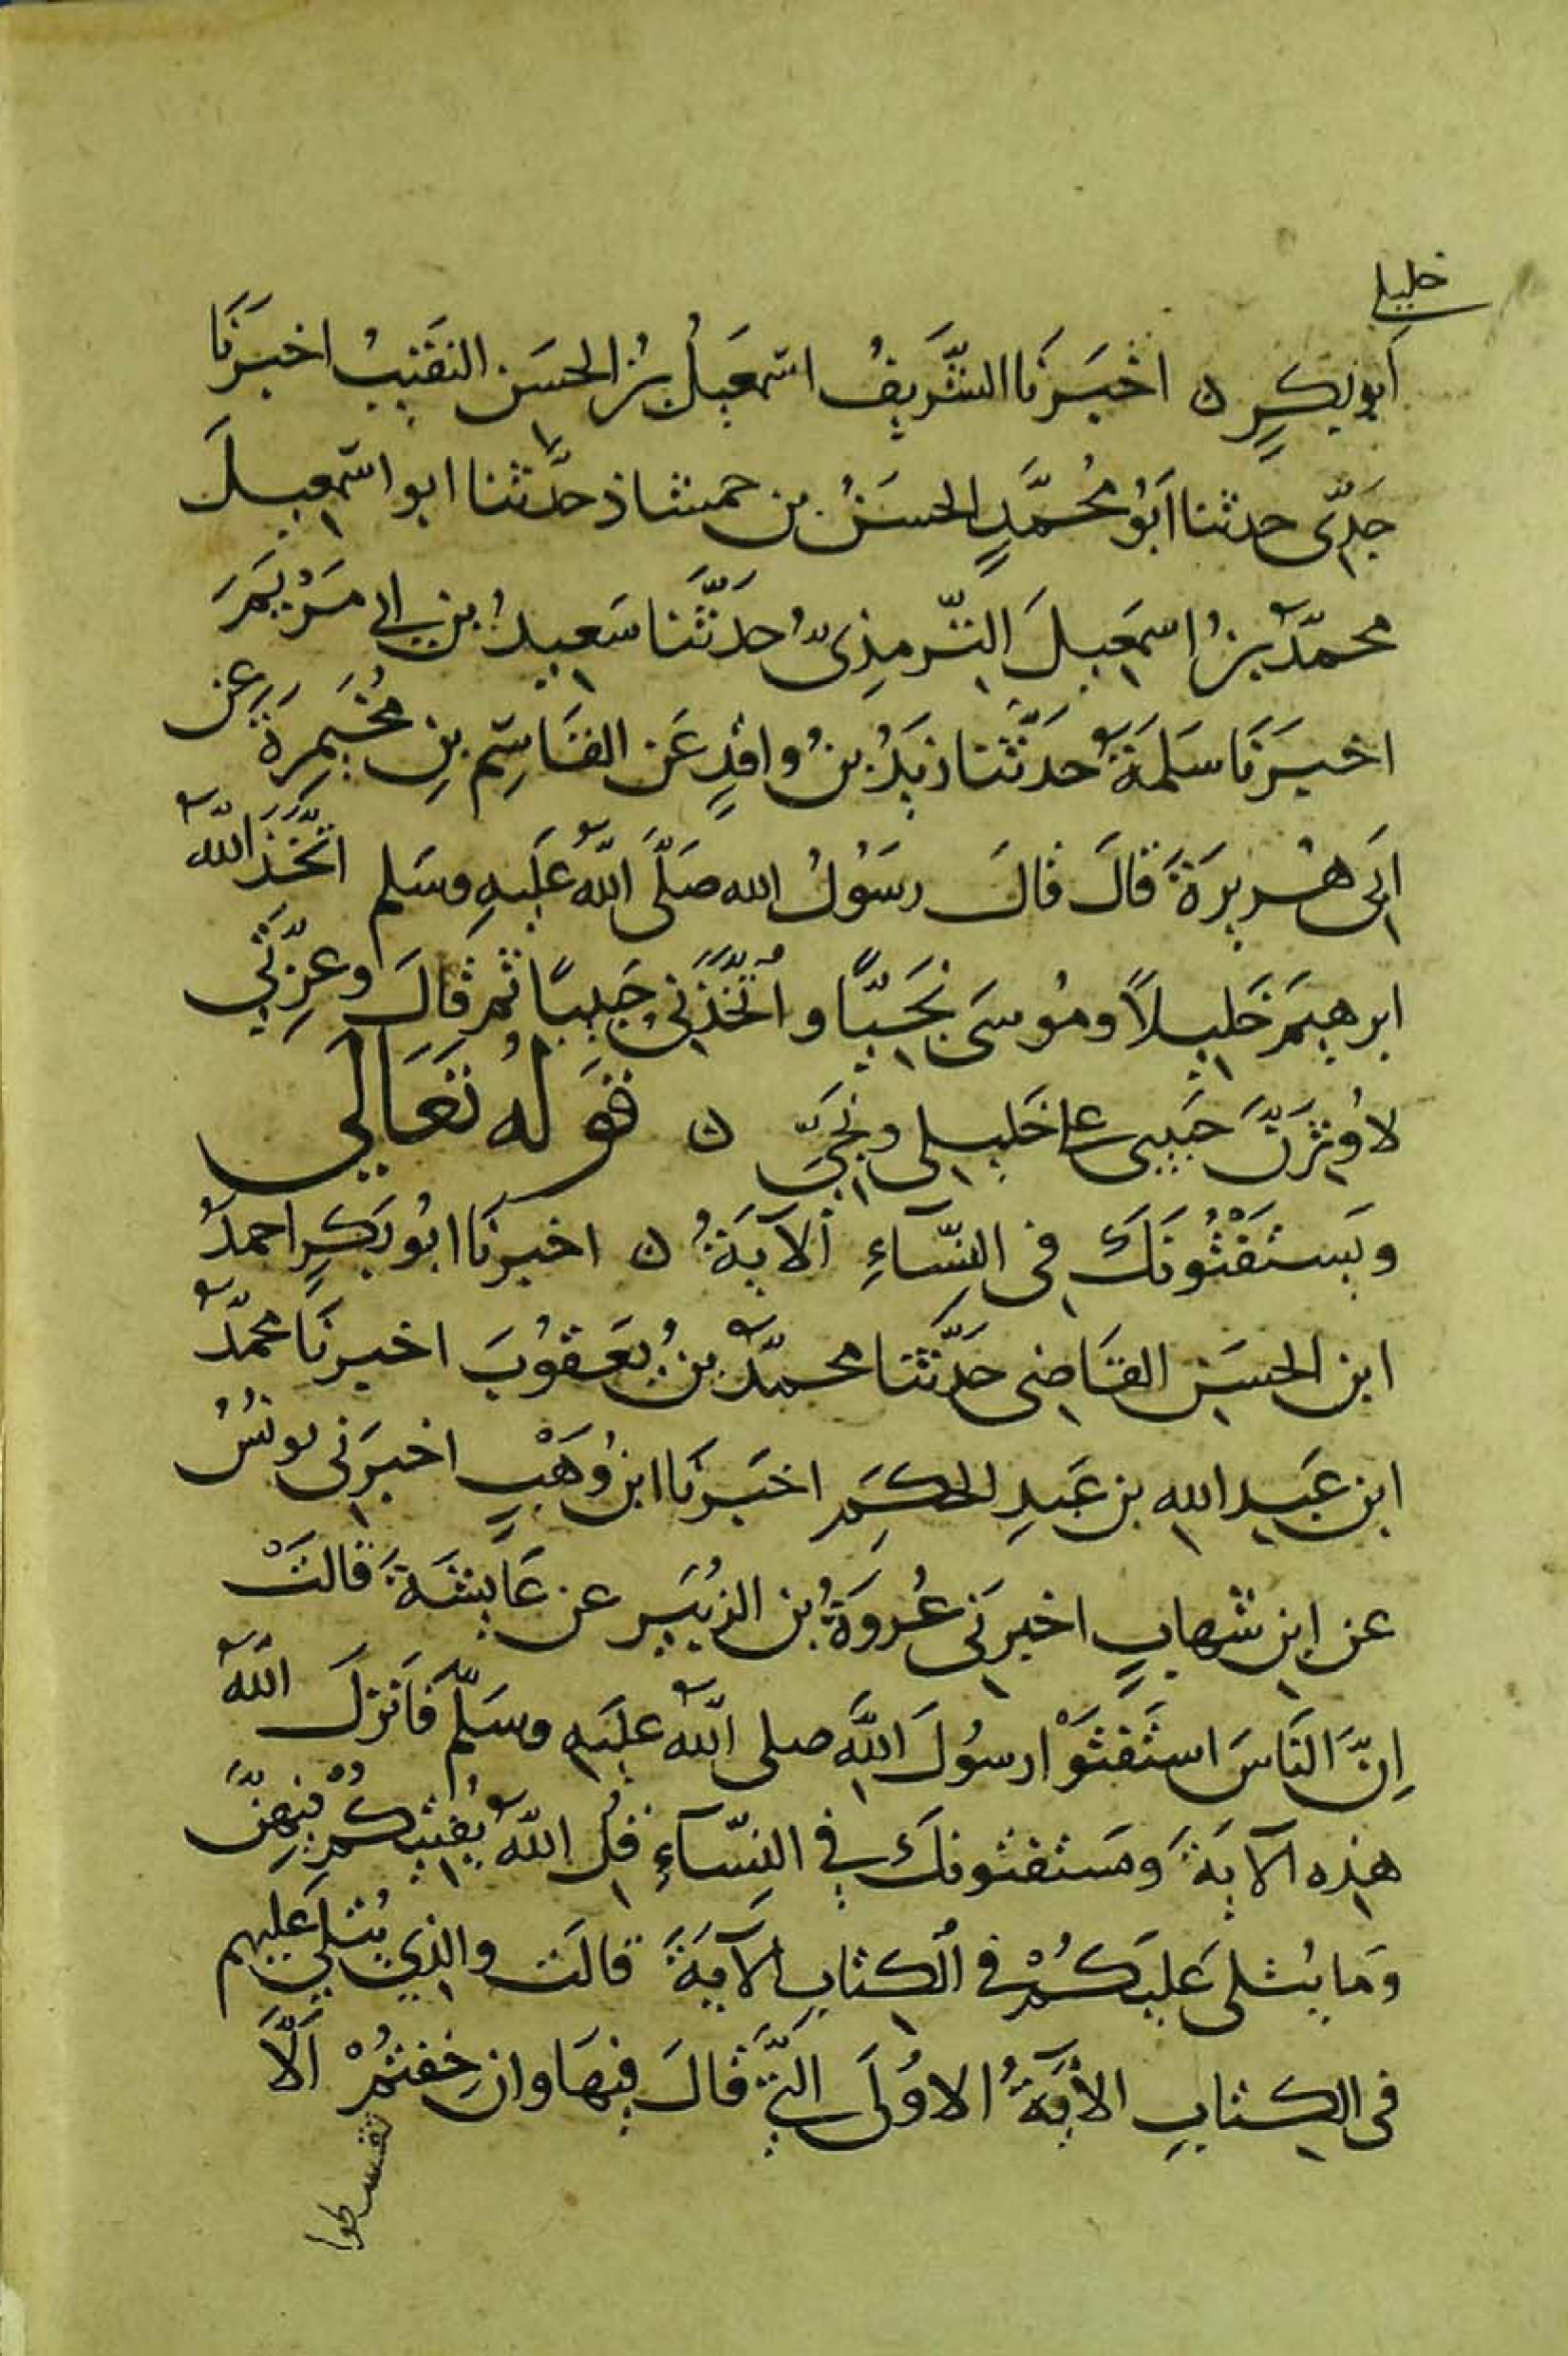 خليلي
أَبو بَكرٍ ۝ اخْبَرَنَا الشَّرِيفُ اسْمعيلُ بْنُ الحسَنِ النقيبُ اخبرَنَا
جَدِّى حدثنا أَبُو مُحمَّدٍ الحسَنُ بن حمشاذ حدَّثنا ابو اسمعيلَ
محمدُ بنُ اسمعيلَ التِّرمذِىُّ حدَّثَنا سَعيدُ بن ابي مَرْيَمَ
اخبرَنَا سَلمَةُ حدَّثَنا زيدُ بنُ واقدٍ عَن القَاسِمِ بنِ مُخَيمِرَةَ عن
ابى هُريرَةَ قالَ قالَ رسُولُ الله صَلَّى اللهُ عَلَيهِ وسَلم اتَّخَذَ اللهُ
ابرهيمَ خَليلاً ومُوسَى نَجيّاً واتَّخَذَنى حَبيبًا ثم قالَ وعِزَّتي
لاُوثِرَنَّ حَبيبى على خليلى ونجيّ ۝ قوله تعَالى
ويَستَفْتُونَكَ فى النِّسَاءِ الآيَةُ ۝ اخبرنَا ابُو بَكرٍ احمدُ
ابن الحسَنِ القَاضى حدَّثَنا محمدُ بنُ يَعقُوبَ اخبرنَا محمدُ
ابن عَبد اللهِ بن عَبدِ الحكَمِ اخبَرنَا ابن وَهْبٍ اخبرَنى يونسُ
عن ابنِ شهابٍ اخبرنى عُروَةُ بن الزبَيرِ عن عَايشَةَ قالتْ
اِنَّ النَاسَ استَفتَوْا رسُولَ اللهِ صلى اللهُ عليهِ وسَلَّم فَانزلَ اللهُ
هذِه الآيةَ ومَستفتونكَ في النِّسَآءِ قُلِ اللهُ يُفتيكُمْ فيهِنَّ
وَما يُتلى عَليكُمْ فى الكتابِ الآيةَ قالَت والذي يُتلى عَليهِم
فى الكتابِ الاٰيةُ الاوُلَى التي قالَ فيهَا وان خِفتُمْ اَلَّا
تقسطوا